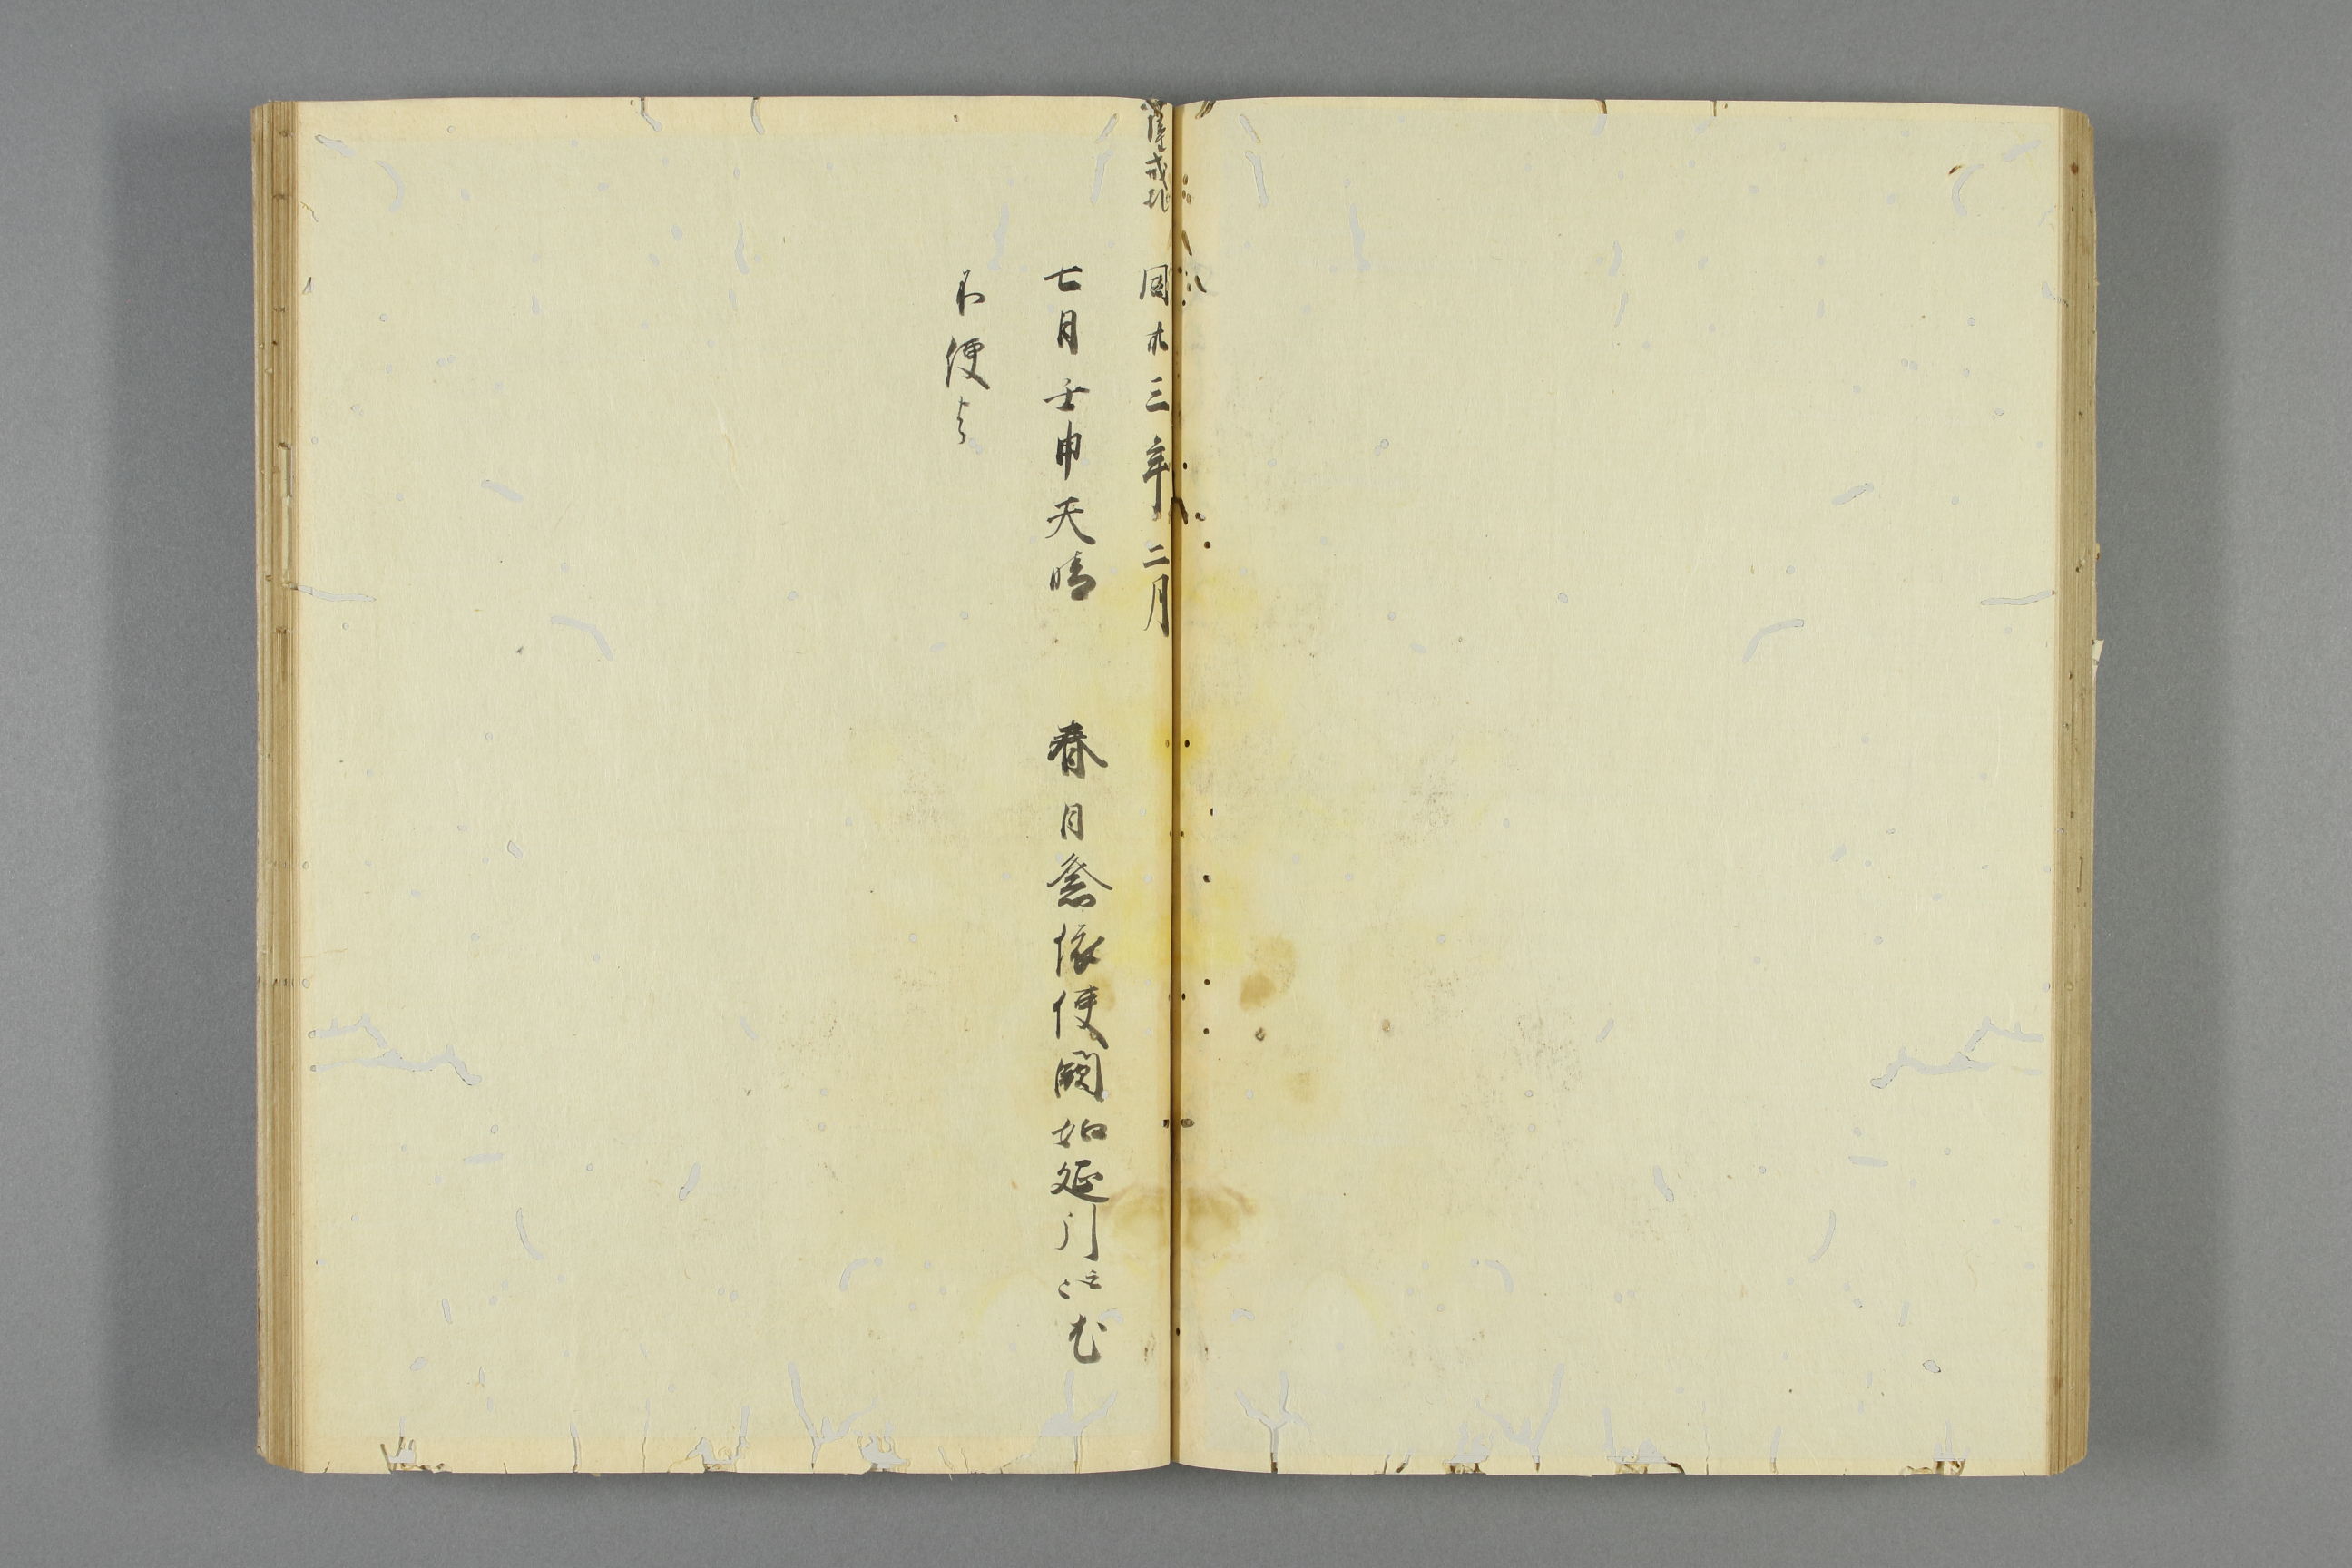 同廿三年二月
七月壬申天晴 春日祭依使闕如延引
不便々々